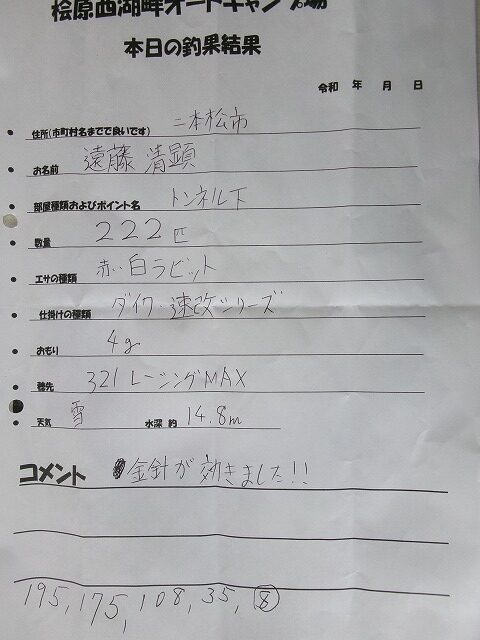 桧原西湖畔オートキャンプ場
本日の釣果結果
令和 年 月 日
住所(市町村名までで良いです) 二本松市
お名前 遠藤 清顕
部屋種類およびポイント名 トンネル下
数量 222匹
エサの種類 赤・白ラビット
仕掛けの種類 ダイワ・速攻シリーズ
おもり 4g
穂先 321レーシングMAX
天気 雪 水深 約 14.8m
コメント 金針が効きました!!
195, 175, 108, 35, ⑧